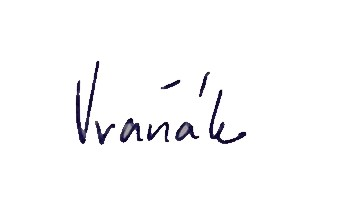 Vraňák